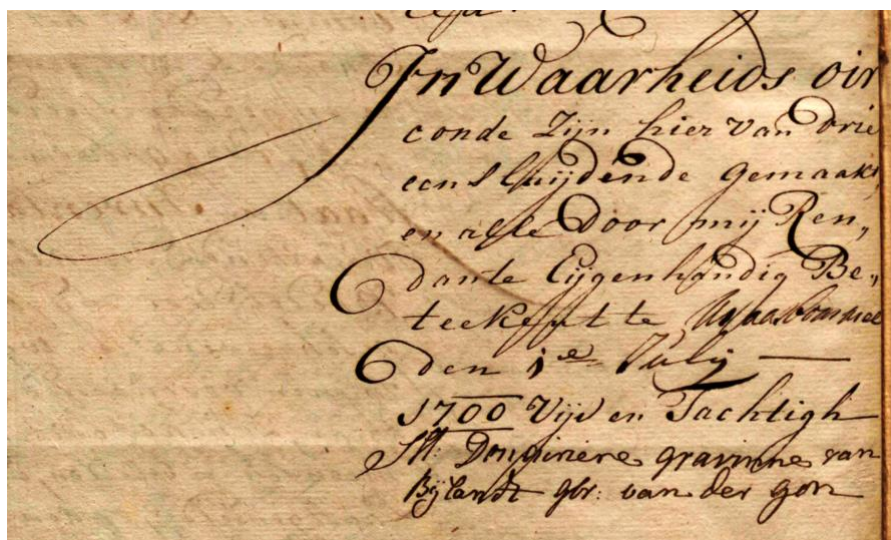 In Waarheids oir
conde Zijn hier van drie
eensluijdende gemaakt,
en alle Door mij Ren„
dante Eijgenhandig Be„
teekent te
den 1e July —
1700 Vijf en Tachtigh
gravinne van
Bijlandt gbr: van der gon